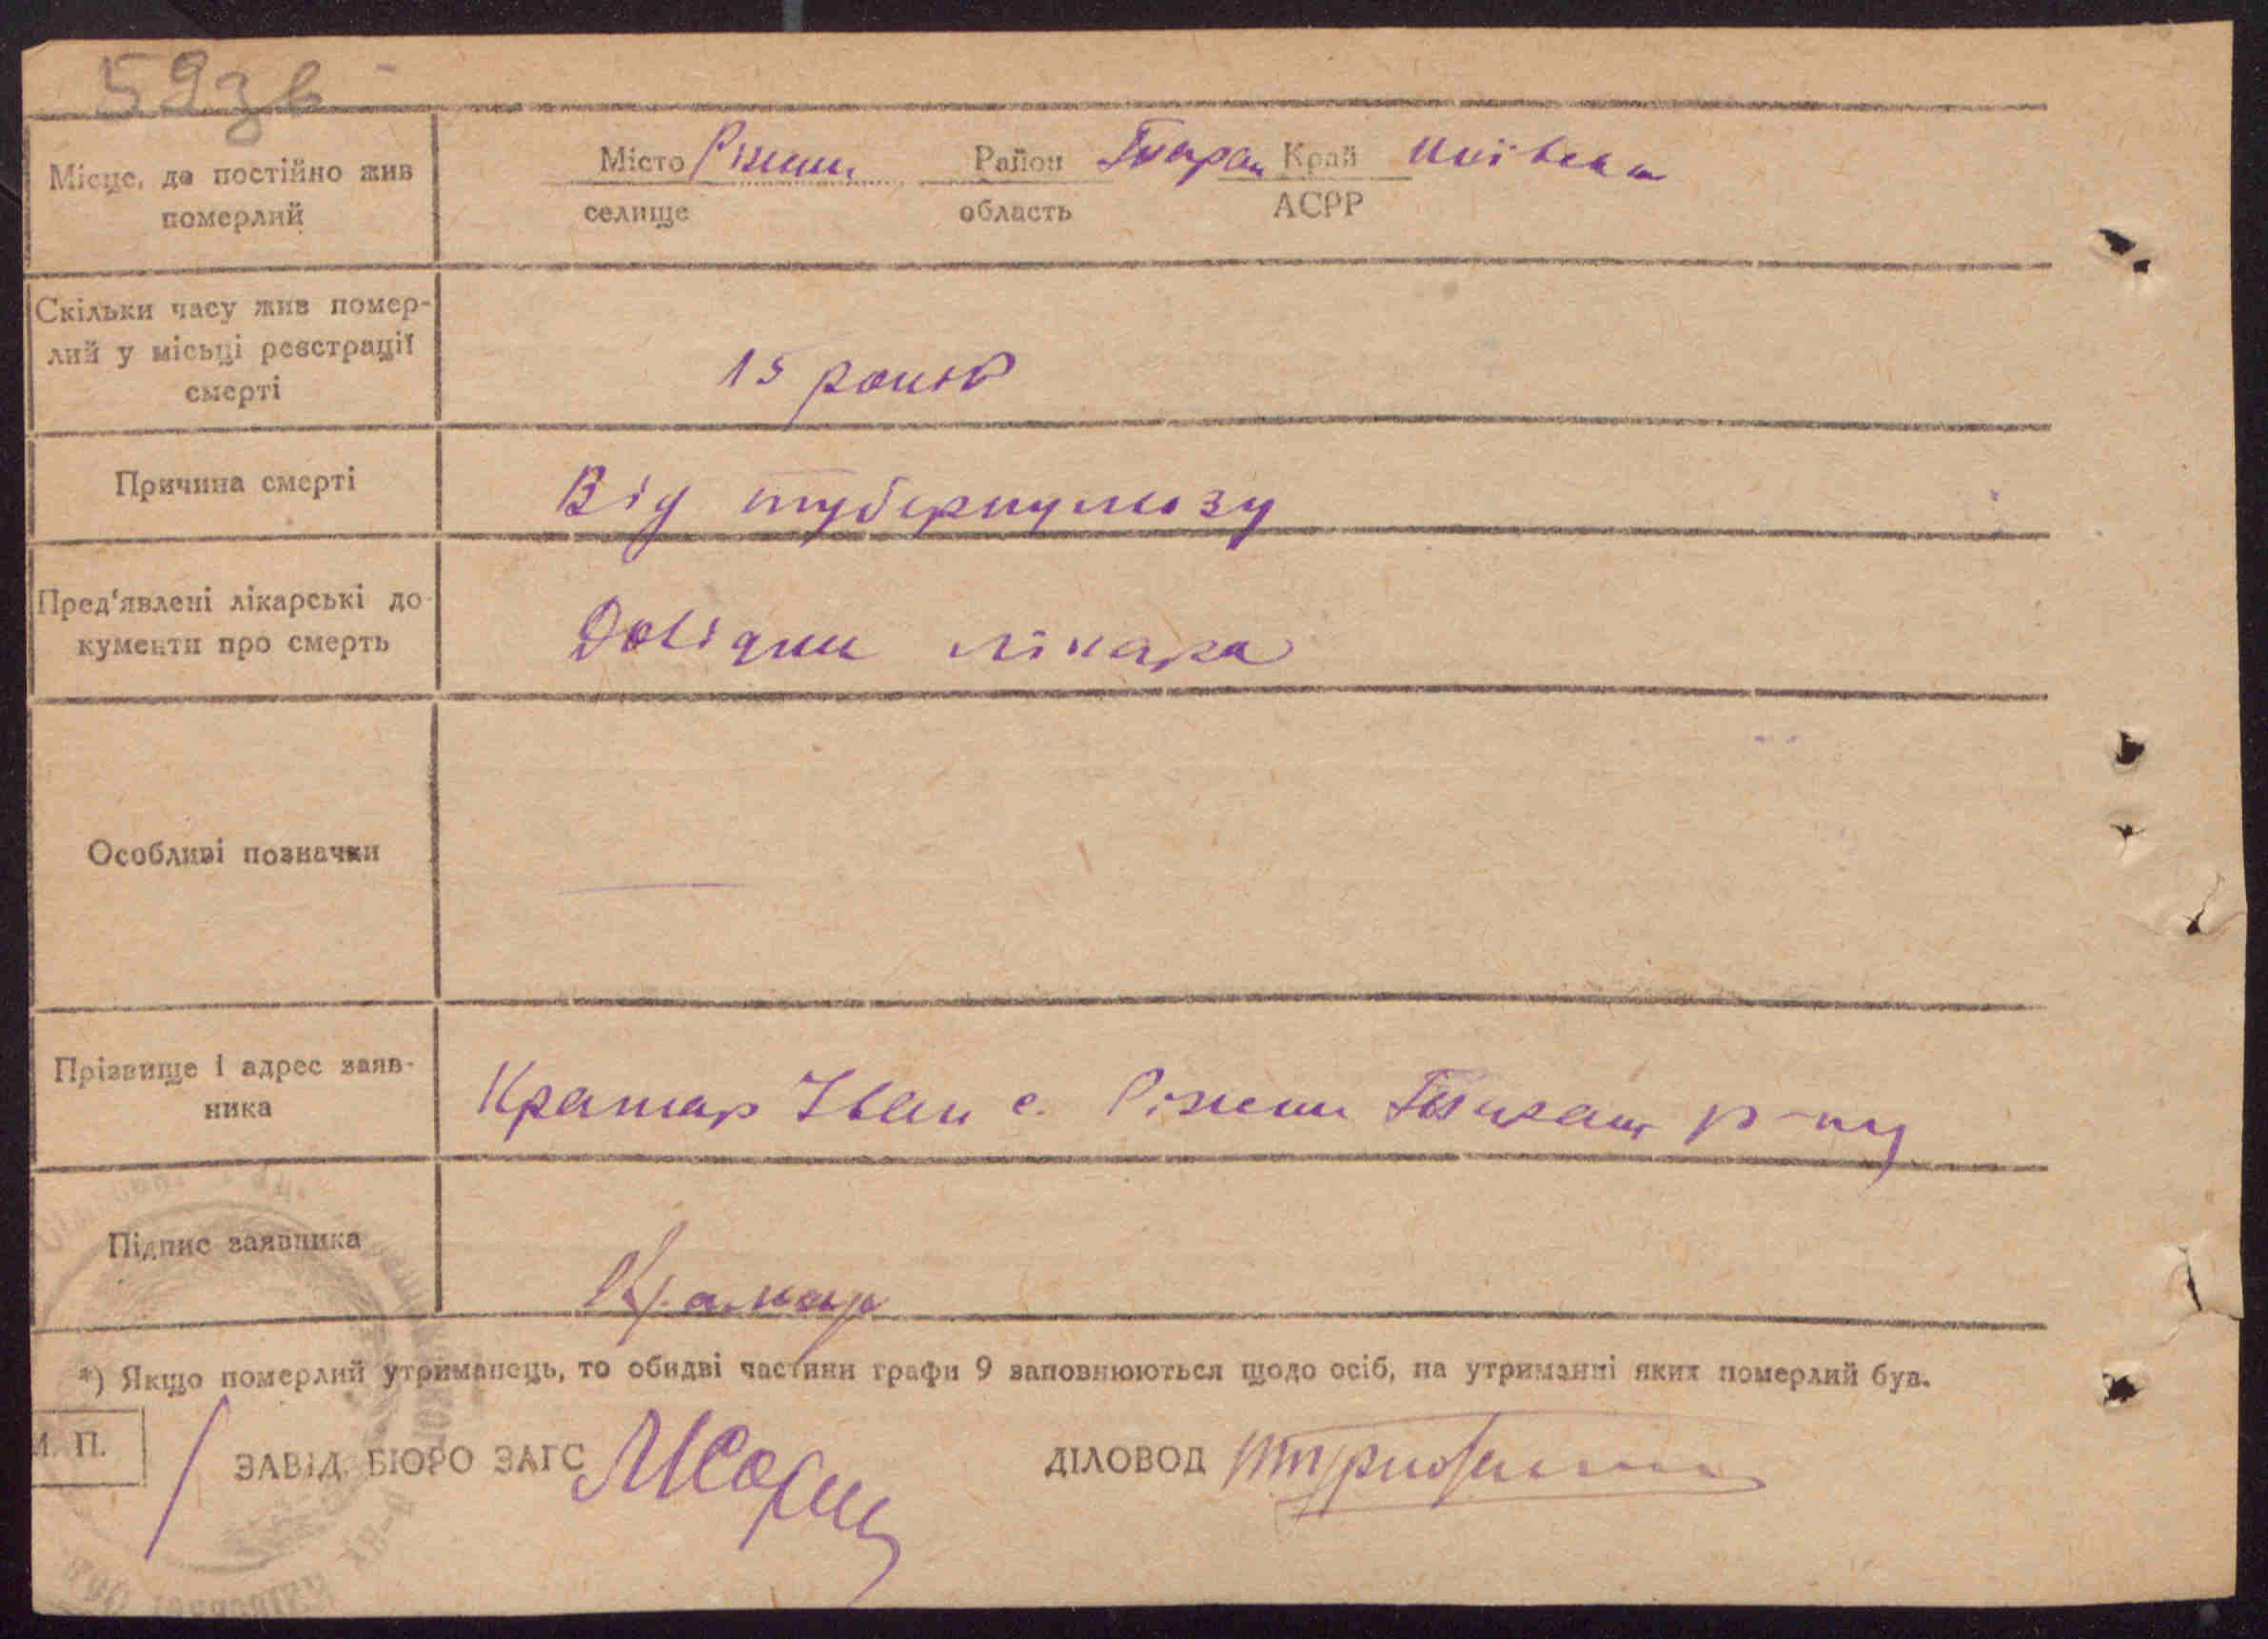 59зв
Місце, де постійно жив
померлий
Місто Ріжки Район Тинран Край Київська
селище область АСРР
Скільки часу жив помер-
лий у місьці реєстрації
смерті
15 років
Причина смерті
Від туберкульозу
Пред'явлені лікарські до-
кументи про смерть
Довідки лікара
Особливі позначки
Прізвище і адрес заяв-
ника
Крамар Іван с. Ріжки р-ну
Підпис заявника
Крамар
*) Якщо померлий утриманець, то обидві частини графи 9 заповнюються щодо осіб, на утриманні яких померлий був.
М. П.
ЗАВІД. БЮРО ЗАГС ДІЛОВОД